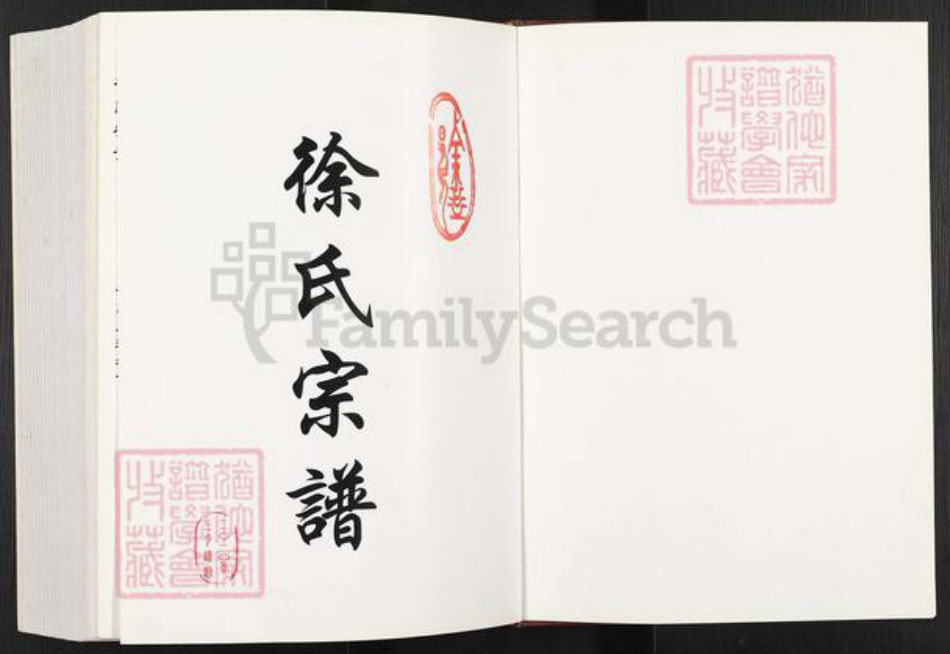 徐氏宗譜
猶他家
譜學會
收藏
猶他家
譜學會
收藏
FamilySearch